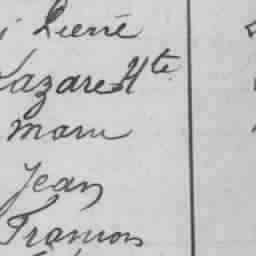 Pierre
Lazare Hte
Marie
Jean
François